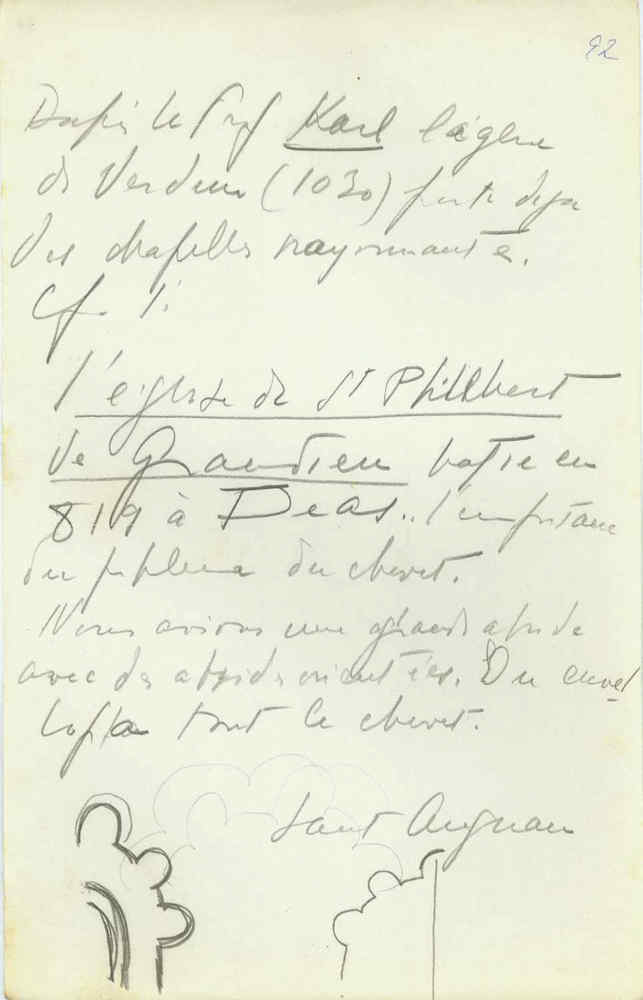 92
le Prof Karl l'église
de Verdun (1030) porte deja
des chapelles rayonnantes.
Cf. l'
l'église de St Philbert
de Grandlieu batie en
819 à Deas.. l'importance
du problème du chevet.
Nous avions une grande abside
avec des absides orientées. On envel
loppa tout le chevet.
Saint Aignan